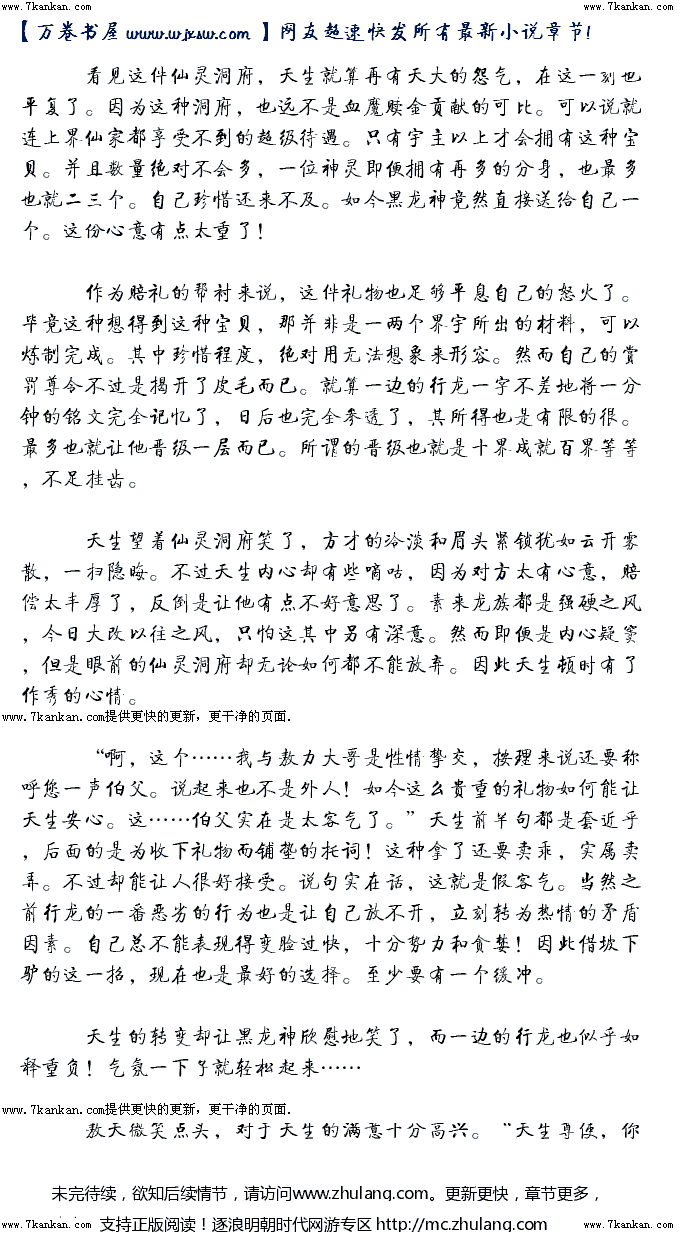 www.7kankan.com www.7kankan.com
【万卷书屋 www.wjxsw.com 】网友超速快发所有最新小说章节!
看见这件仙灵洞府，天生就算再有天大的怨气，在这一刻也
平复了。因为这种洞府，也远不是血魔赎金贡献的可比。可以说就
连上界仙家都享受不到的超级待遇。只有宇主以上才会拥有这种宝
贝。并且数量绝对不会多，一位神灵即便拥有再多的分身，也最多
也就二三个。自己珍惜还来不及。如今黑龙神竟然直接送给自己一
个。这份心意有点太重了！
作为赔礼的帮衬来说，这件礼物也足够平息自己的怒火了。
毕竟这种想得到这种宝贝，那并非是一两个界宇所出的材料，可以
炼制完成。其中珍惜程度，绝对用无法想象来形容。然而自己的赏
罚尊令不过是揭开了皮毛而已。就算一边的行龙一字不差地将一分
钟的铭文完全记忆了，日后也完全参透了，其所得也是有限的很。
最多也就让他晋级一层而已。所谓的晋级也就是十界成就百界等等
，不足挂齿。
天生望着仙灵洞府笑了，方才的冷淡和眉头紧锁犹如云开雾
散，一扫隐晦。不过天生内心却有些嘀咕，因为对方太有心意，赔
偿太丰厚了，反倒是让他有点不好意思了。素来龙族都是强硬之风
，今日大改以往之风，只怕这其中另有深意。然而即便是内心疑窦
，但是眼前的仙灵洞府却无论如何都不能放弃。因此天生顿时有了
作秀的心情。
www.7kankan.com提供更快的更新，更干净的页面.
“啊，这个……我与敖力大哥是性情挚交，按理来说还要称
呼您一声伯父。说起来也不是外人！如今这么贵重的礼物如何能让
天生安心。这……伯父实在是太客气了。”天生前半句都是套近乎
，后面的是为收下礼物而铺垫的托词！这种拿了还要卖乖，实属卖
弄。不过却能让人很好接受。说句实在话，这就是假客气。当然之
前行龙的一番恶劣的行为也是让自己放不开，立刻转为热情的矛盾
因素。自己总不能表现得变脸过快，十分势力和贪婪！因此借坎下
驴的这一招，现在也是最好的选择。至少要有一个缓冲。
天生的转变却让黑龙神欣慰地笑了，而一边的行龙也似乎如
释重负！气氛一下子就轻松起来……
www.7kankan.com提供更快的更新，更干净的页面.
敖天微笑点头，对于天生的满意十分高兴。“天生尊使，你
未完待续，欲知后续情节，请访问www.zhulang.com。更新更快，章节更多，
www.7kankan.com 支持正版阅读！逐浪明朝时代网游专区 http://mc.zhulang.com www.7kankan.com